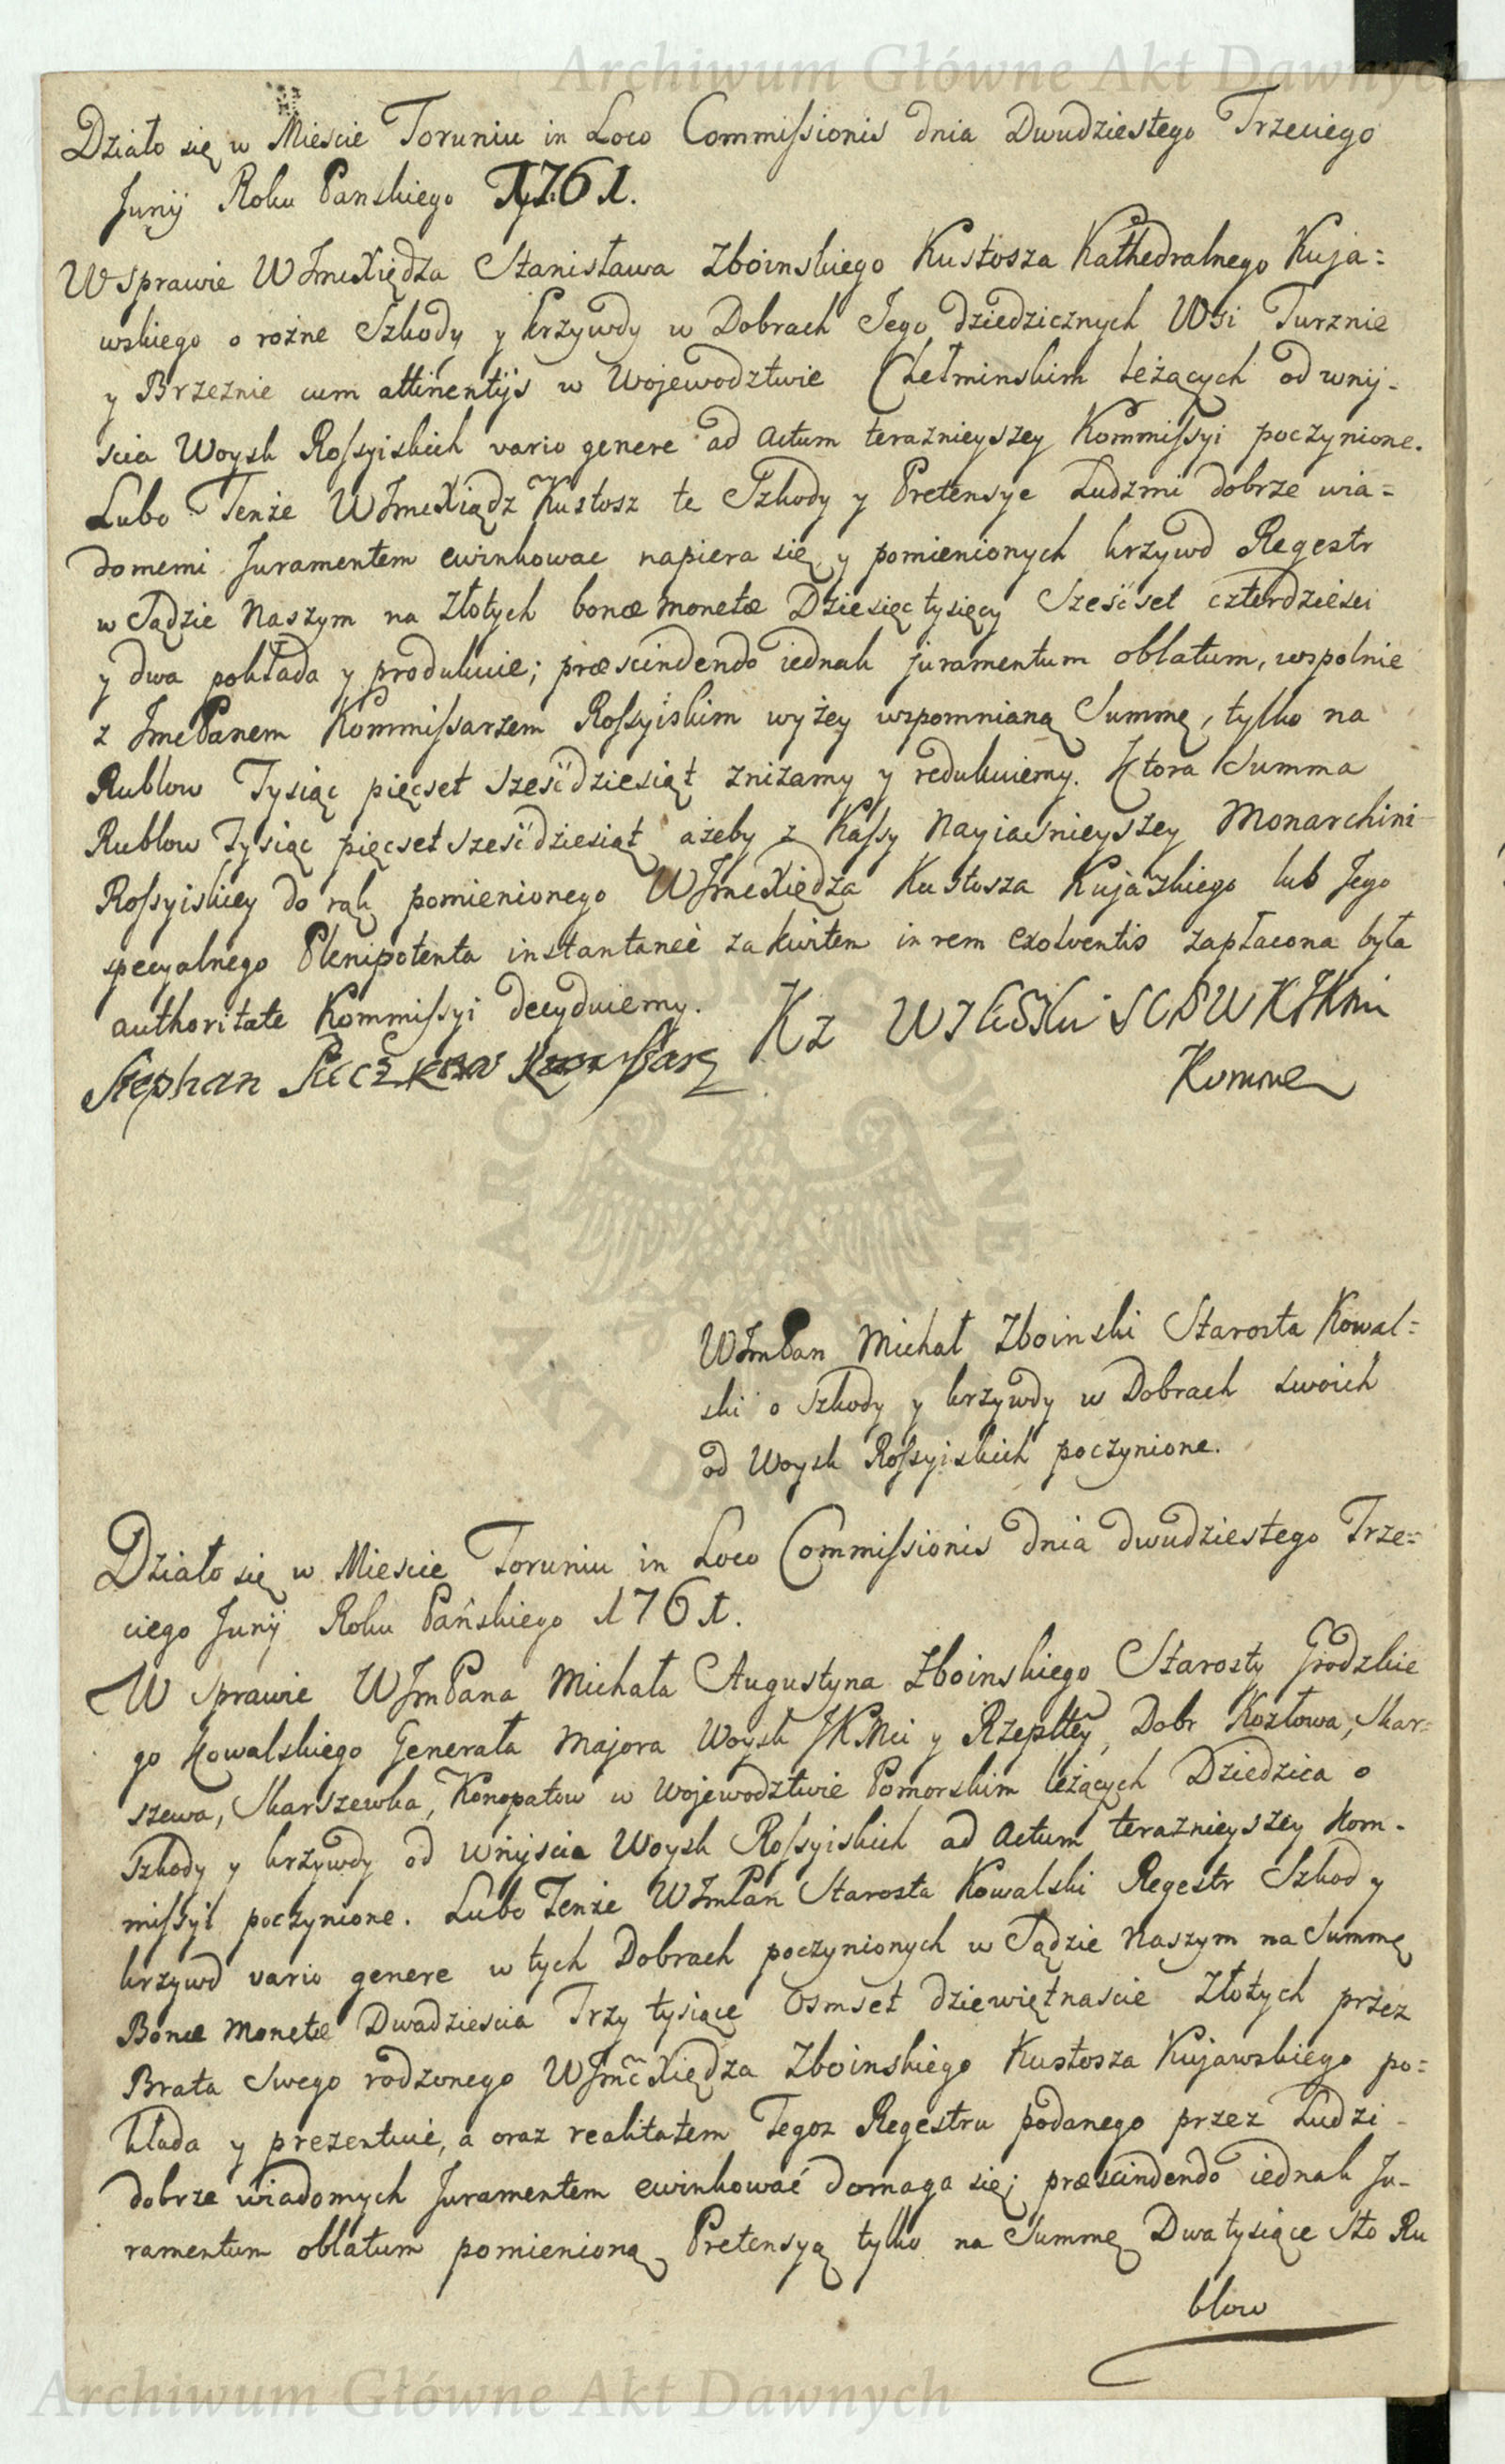 Archiwum Główne Akt Dawnych
Działo się w Mieście Toruniu in Loco Commissionis dnia Dwudziestego Trzeciego
Junij Roku Panskiego 1761.
W sprawie WJmcXiędza Stanisława Zboinskiego Kustosza Kathedralnego Kuja=
wskiego o rożne Szkody y krzywdy w Dobrach Jego dziedzicznych Wsi Turznie
y Brzeznie cum attinentijs w Wojewodztwie Chełminskim leżących od wnij-
scia Woysk Rossyiskich vario genere ad Actum teraznieyszey Kommissyi poczynione.
Lubo Tenże WJmcXiądz Kustosz te Szkody y Pretensye Ludzmi dobrze wia=
domemi Juramentem ewinkowac napiera się y pomienionych krzywd Regestr
w Sądzie Naszym na Złotych bonæ monetæ Dziesięc tysięcy Sześćset czterdziesci
y dwa pokłada y produkuie; præscindendo iednak juramentum oblatum, wspolnie
z JmcPanem Kommissarzem Rossyiskim wyżey wspomnianą Summę, tylko na
Rublow Tysiąc pięcset sześćdziesiąt zniżamy y redukuiemy. Ktora Summa
Rublow Tysiąc pięcset sześćdziesiąt ażeby z Kassy Nayiaśnieyszey Monarchini
Rossyiskiey do rąk pomienionego WJmcXiędza Kustosza Kujaskiego lub Jego
specyalnego Plenipotenta instantaneè za kwitem in rem exolventis zapłacona była
authoritate Kommissyi decyduiemy.
Stephan
Komme
WJmPan Michał Zboinski Starosta Kowal=
ski o Szkody y krzywdy w Dobrach swoich
od Woysk Rossyiskich poczynione.
Działo się w Miescie Toruniu in Loco Commissionis dnia dwudziestego Trze=
ciego Junij Roku Pańskiego 1761.
W sprawie WJmPana Michała Augustyna Zboinskiego Starosty Grodzkie
go Kowalskiego Generała Majora Woysk JKMci y Rzepltey, Dobr Kozłowa, Skar=
szewa, Skarszewka, Konopatow w Wojewodztwie Pomorskim leżących Dziedzica o
Szkody y krzywdy od wnijscia Woysk Rossyiskich ad Actum terazniejszey Kom-
missyi poczynione. Lubo Tenże WJmPan Starosta Kowalski Regestr Szkod y
krzywd vario genere w tych Dobrach poczynionych w Sądzie Naszym na Summę
Bonæ Monetæ Dwadziescia Trzy tysiące Osmset dziewiętnascie Złotych przez
Brata Swego rodzonego WJmcXiędza Zboinskiego Kustosza Kujawskiego po=
kłada y prezentuie, a oraz realitatem Tegoz Regestru podanego przez Ludzi
dobrze wiadomych Juramentem ewinkować domaga się; præscindendo iednak Ju-
ramentum oblatum pomienioną Pretensyą tylko na Summę Dwa tysiące Sto Ru
blow
Archiwum Główne Akt Dawnych